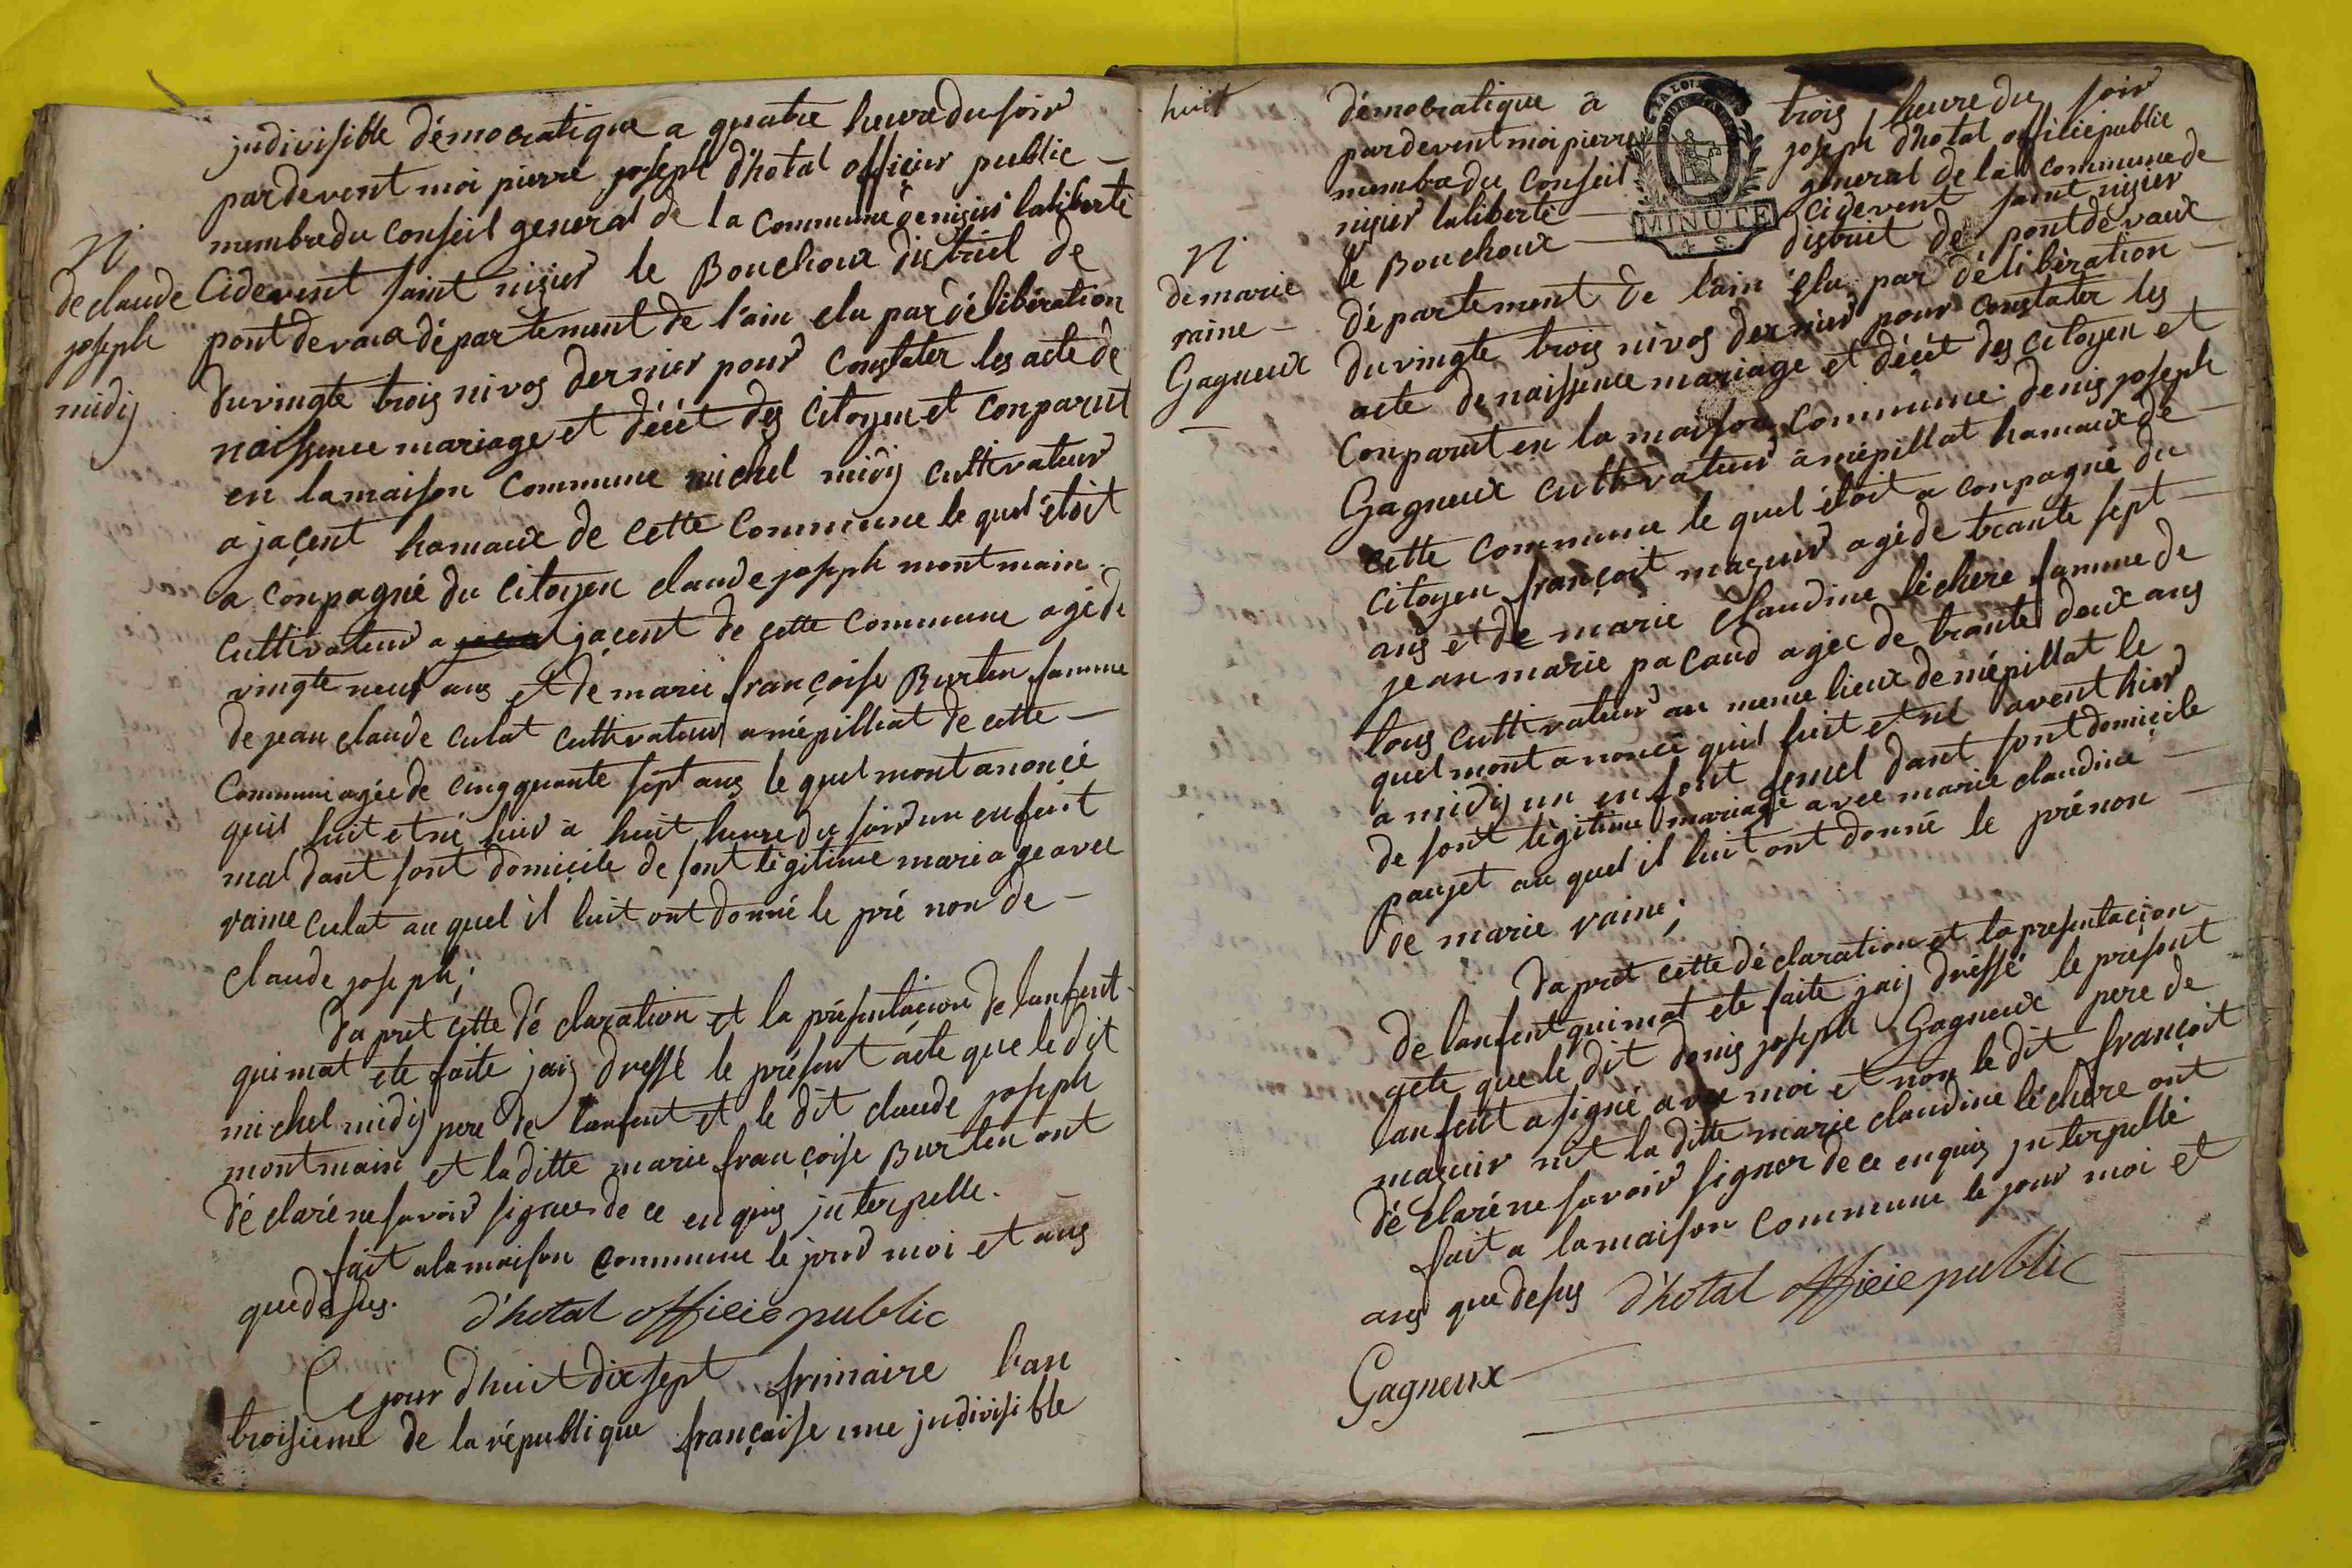 judivisible démocratique a quatre heure du soir
pardevent moi pierre joseph d'hotal officier public
membre du conseil general de la commune de nizier laliberté
N
de claude
joseph
midy
Cidevent saint nizier le Bouchoux district de
pont de vaux département de l'ain elu par délibération
du vingte trois nivos dernier pour constater les acte de
naissence mariage et décèt des citoyen et conparut
en la maison commune michel midy cultivateur
a jaçent hamaux de cette commune le quel étoit
a conpagné du citoyen claude joseph montmain
cultivateur a jaçent de cette commune agé de
vingte neuf ans et de marie françoise Burten famme
de jean claude culat cultivateur a mépilliat de cette
commune agée de cinqquante sept ans le quel mont anoncé
quil luit et né hier à huit heure du soir un enfent
mal dant sont domicile de sont légitime mariage avec
raine culat au quel il luit ont donné le pré non de
claude joseph;
Daprêt cette déclaration et la présentacion de lanfent
qui mat ete faite jaiy dressé le présent acte que le dit
michel midy pere de lanfent et le dit claude joseph
montmain et la ditte marie françoise Burten ont
déclaré ne savoir signer de ce enquis judterpelle.
fait a la maison commune le jour moi et ans
que desus. d'hotal officie public
Ce jour d'huit dix sept frimaire l'an
troisieme de la république française une judivisible
huit
démocratique à trois heure du soir
pardevent moi pierre joseph d'hotal officie public
membre du conseil general de la commune de
nizier laliberté cidevent saint nizier
N
de marie
raine
Gagneux
le Bouchoux district de pont de vaux
LA LOI
MINUTE
4 S
département de l'ain élu par délibération
du vingte trois nivos dernier pour constater les
acte de naissence mariage et décèt des citoyen et
Conparut en la maison commune denis joseph
Gagneux cultivateur à mépillat hamaux de
cette commune le quel étoit a conpagné du
citoyen françoit mazuir agé de trante sept
ans et de marie claudine léchere famme de
jean marie pacaud agée de trante deux ans
tous cultivateur au meme lieux de mépillat le
quel mont anoncé quil luit et né avent hier
a midy un enfent femel dant sont domicile
de sont légitime mariage avec marie claudine
paujet au quel il luit ont donné le prénon
de marie raine;
Daprêt cette déclaration et la presentacion
de lanfent qui mat ete faite jaiy dréssé le present
acte que le dit denis joseph Gagneux pere de
lanfent a signé avec moi et non le dit françoit
mazuir nit la ditte marie claudine léchere ont
déclaré ne savoir signer de ce enquis judterpellé
fait a la maison commune le jour moi et
ans que desus d'hotal officie public
Gagneux